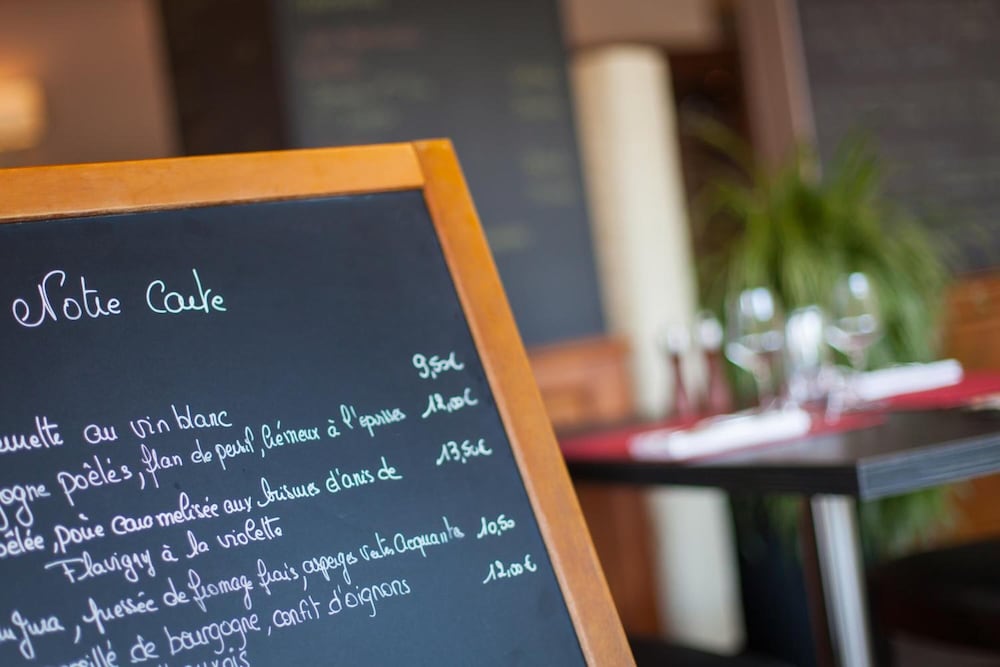 Notre Carte
9,50€
au vin blanc
12,00€
poêlés, flan de persil, crémeux à l'époisses
13,50€
poêlée, poire caramelisée aux brisures d'anis de
Flavigny à la violette
10,50
Jura, pressée de fromage frais, asperges vertes Acquants
12,00€
de bourgogne, confit d'oignons